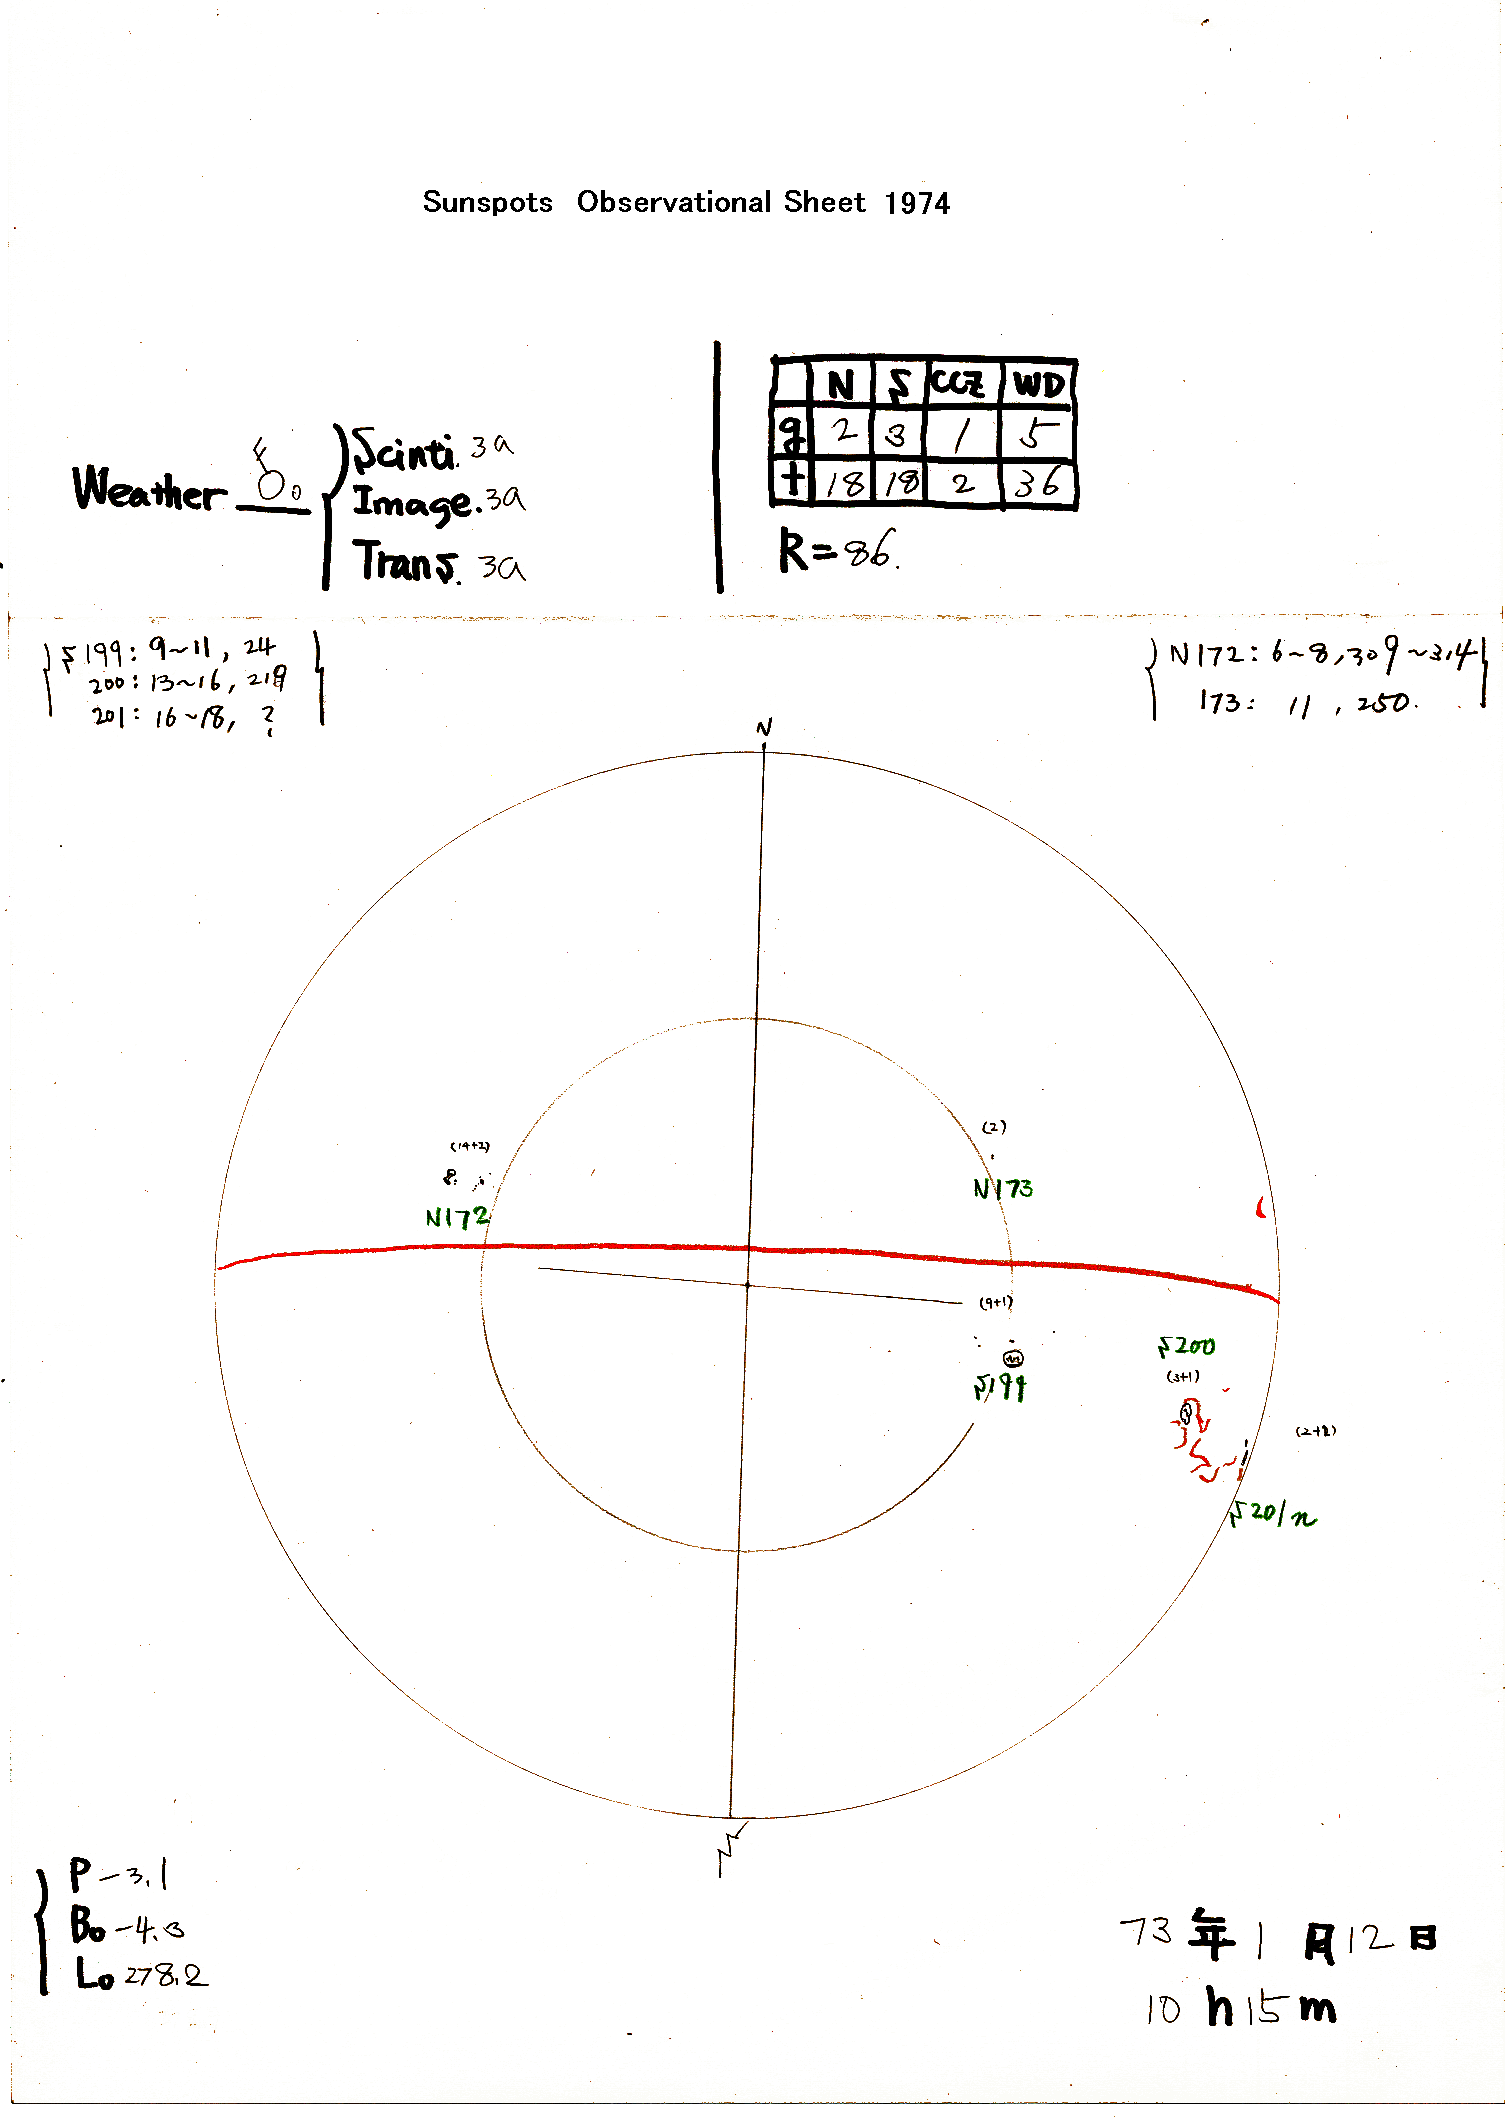 Sunspots Observational Sheet 1974
N S CCZ WD
g 2 3 1 5
t 18 18 2 36
R=86.
Weather
Scinti. 3a
Image. 3a
Trans. 3a
S199: 9~11, 24
200: 13~16, 219
201: 16~18, ?
N172: 6~8, 309~314
173: 11, 250.
N
(14+2)
N172
(2)
N173
(9+1)
S199
S200
(3+1)
S201n
S
P -3.1
Bo -4.3
Lo 278.2
73年1月12日
10h15m